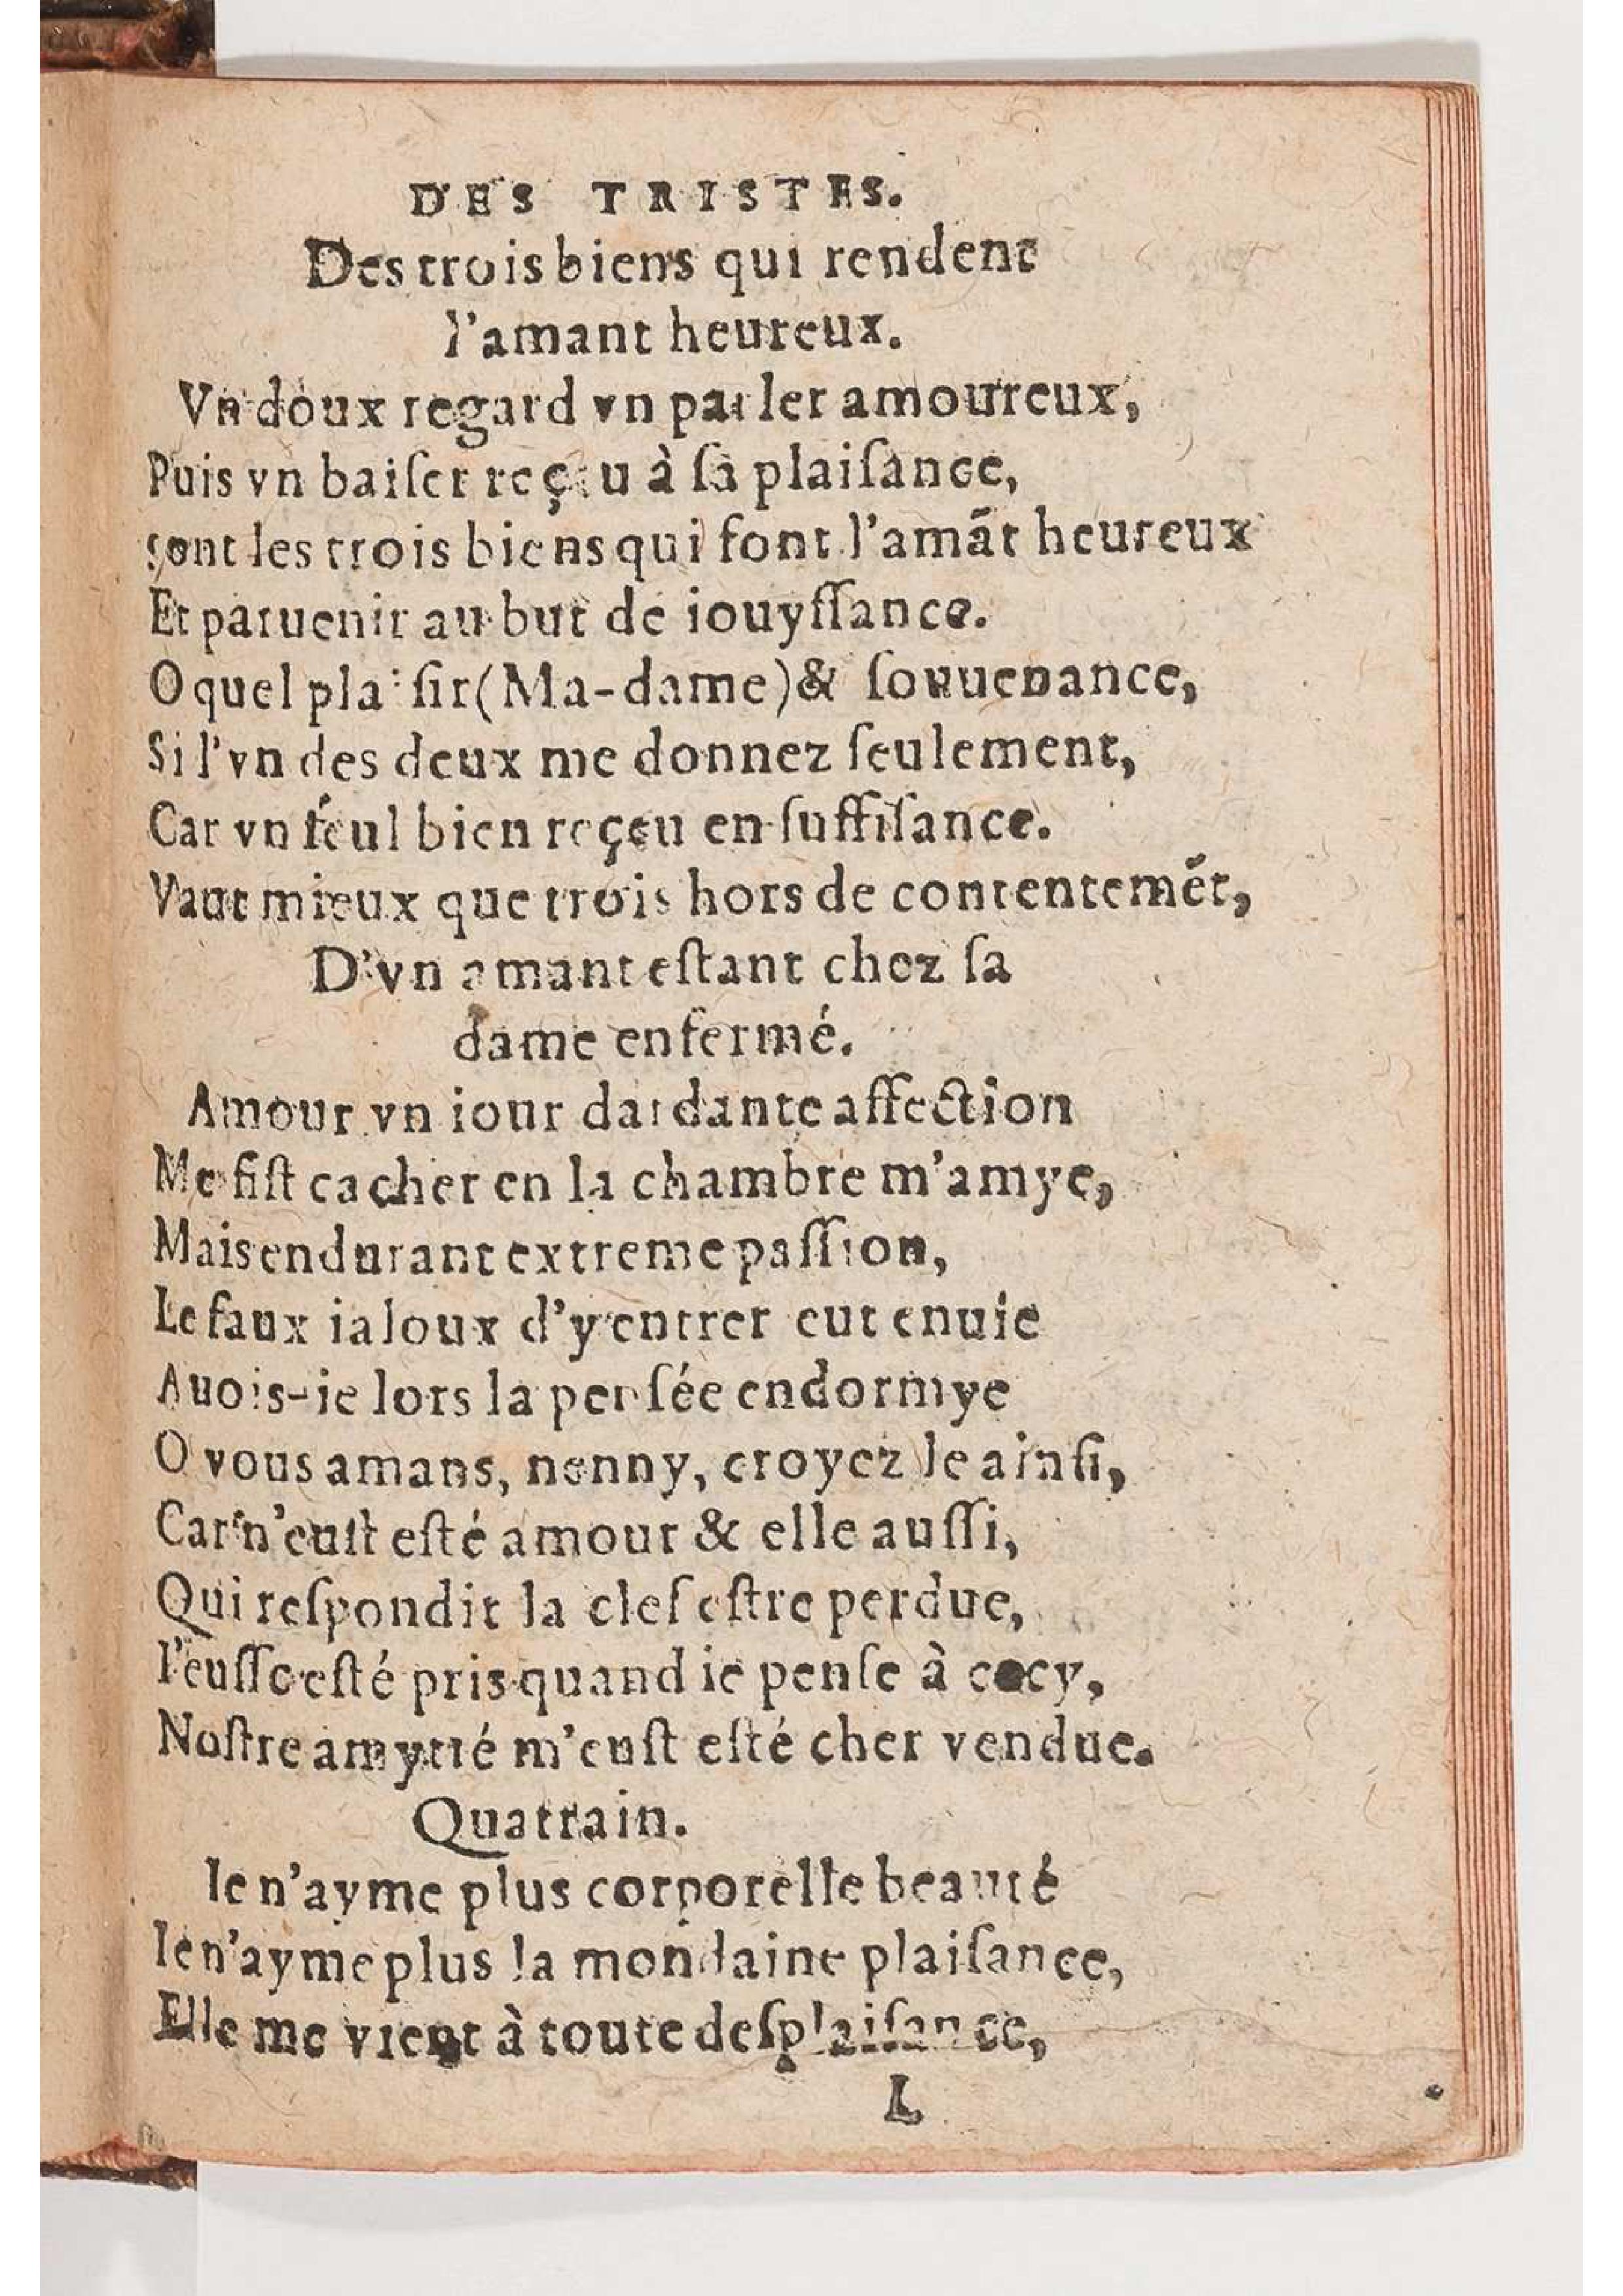 DES TRISTES.
Des trois biens qui rendent
l'amant heureux.
Vn doux regard vn parler amoureux,
Puis vn baiſer reçeu à ſa plaiſance,
sont les trois biens qui font l'amāt heureux
Et paruenir au but de iouyſſance.
O quel plaiſir (Ma-dame) & ſouuenance,
Si l'vn des deux me donnez ſeulement,
Car vn ſeul bien reçeu en ſuffiſance.
Vaut mieux que trois hors de contentemēt,
D'vn amant eſtant chez ſa
dame enfermé.
Amour vn iour dardante affection
Me fiſt cacher en la chambre m'amye,
Mais endurant extreme paſſion,
Le faux ialoux d'y entrer eut enuie
Auois-ie lors la penſée endormye
O vous amans, nenny, croyez le ainſi,
Car n'euſt eſté amour & elle auſſi,
Qui reſpondit la clef eſtre perdue,
I'euſſe eſté pris quand ie penſe à cecy,
Noſtre amytié m'euſt eſté cher vendue.
Quatrain.
Ie n'ayme plus corporelle beauté
Ie n'ayme plus la mondaine plaiſance,
Elle me vient à toute deſplaiſance,
L